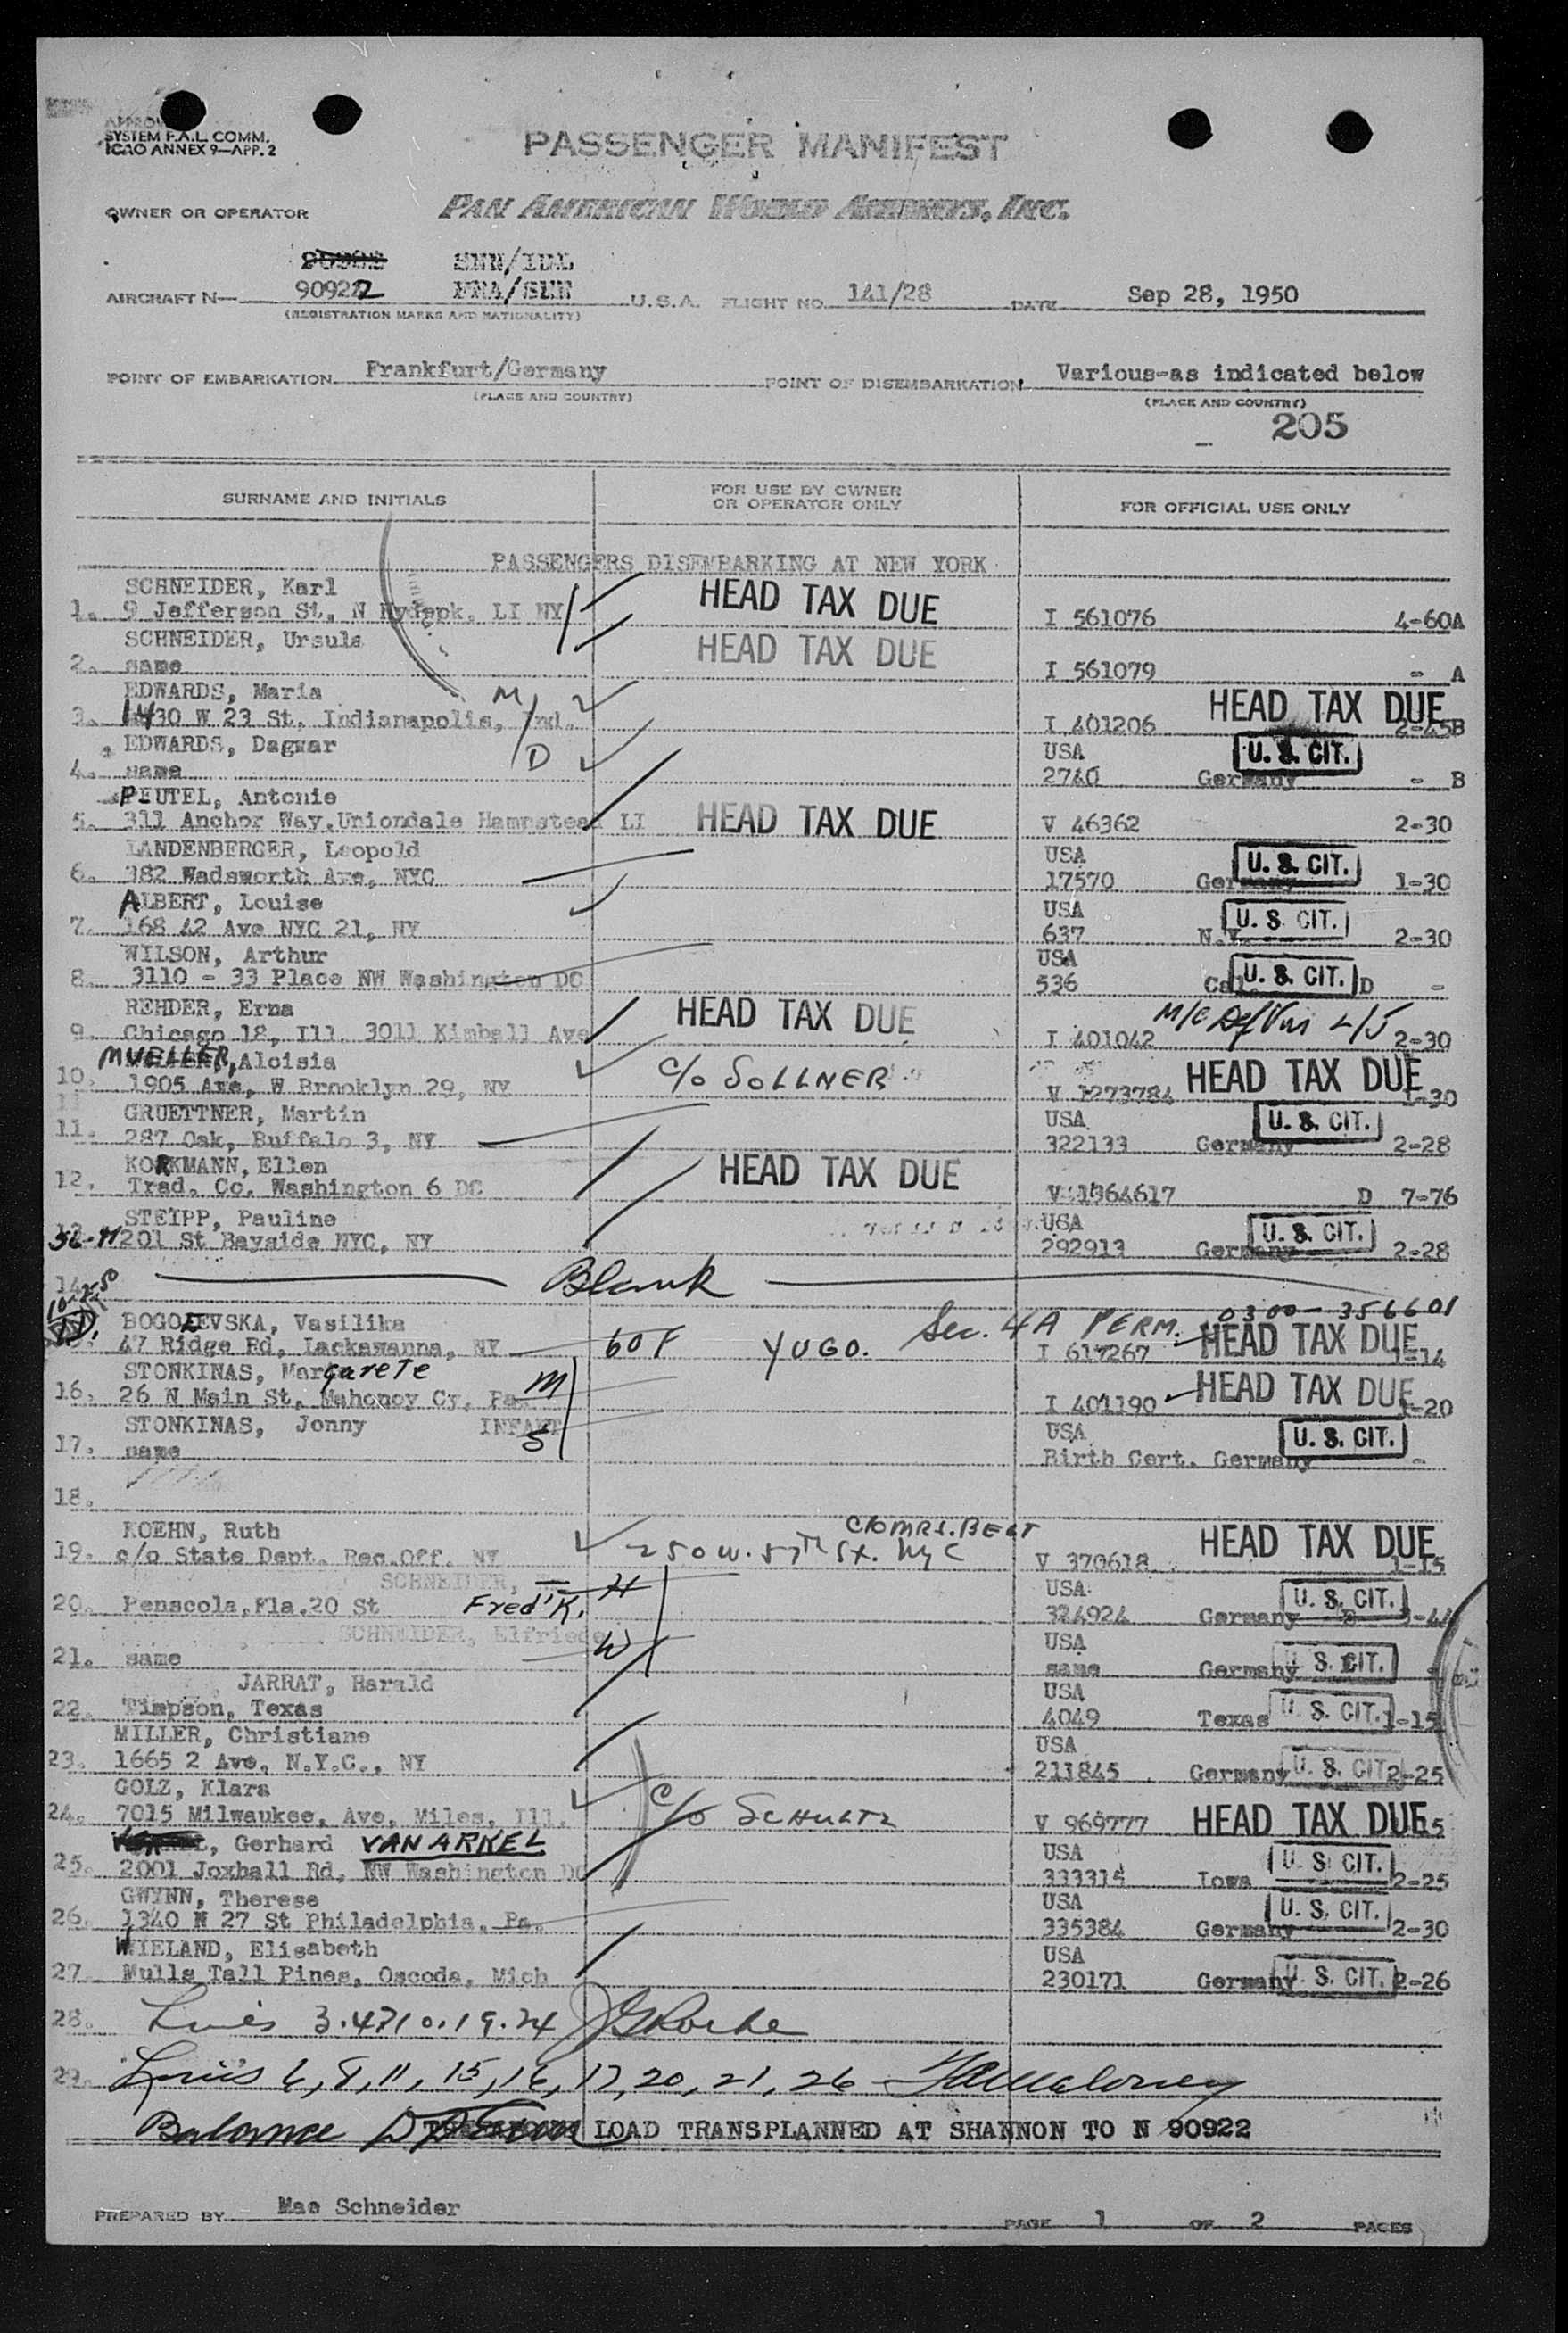 SYSTEM F.A.L. COMM.
ICAO ANNEX 9—APP. 2
PASSENGER MANIFEST
OWNER OR OPERATOR PAN AMERICAN WORLD AIRWAYS, INC.
SNN/IDL
AIRCRAFT N— 90922 FRA/SNN U.S.A. FLIGHT NO. 141/28 DATE Sep 28, 1950
(REGISTRATION MARKS AND NATIONALITY)
POINT OF EMBARKATION Frankfurt/Germany POINT OF DISEMBARKATION Various-as indicated below
(PLACE AND COUNTRY) (PLACE AND COUNTRY)
205
SURNAME AND INITIALS FOR USE BY OWNER OR OPERATOR ONLY FOR OFFICIAL USE ONLY
PASSENGERS DISEMBARKING AT NEW YORK
SCHNEIDER, Karl HEAD TAX DUE
1. 9 Jefferson St, N Hydepk, LI NY I 561076 4-60A
SCHNEIDER, Ursula HEAD TAX DUE
2. same I 561079 - A
EDWARDS, Maria M HEAD TAX DUE
3. 1430 W 23 St, Indianapolis, Ind. I 401206 2-45B
EDWARDS, Dagmar D USA U. S. CIT.
4. same 2740 Germany - B
PEUTEL, Antonie
5. 311 Anchor Way, Uniondale Hampstead LI HEAD TAX DUE V 46362 2-30
LANDENBERGER, Leopold USA U. S. CIT.
6. 382 Wadsworth Ave, NYC 17570 Germany 1-30
ALBERT, Louise USA U. S. CIT.
7. 168 42 Ave NYC 21, NY 637 N.Y. 2-30
WILSON, Arthur USA U. S. CIT.
8. 3110 - 33 Place NW Washington DC 536 Cal. D -
REHDER, Erna HEAD TAX DUE
9. Chicago 18, Ill. 3011 Kimball Ave I 401042 2-30
MUELLER, Aloisia c/o SOLLNER HEAD TAX DUE
10. 1905 Ave, W Brooklyn 29, NY V 1273784 1-30
GRUETTNER, Martin USA U. S. CIT.
11. 287 Oak, Buffalo 3, NY 322133 Germany 2-28
KORKMANN, Ellen HEAD TAX DUE
12. Trad. Co. Washington 6 DC V 1364617 D 7-76
STEIPP, Pauline USA U. S. CIT.
13. 56-11 201 St Bayside NYC, NY 292913 Germany 2-28
14. Blank
10-2-50
BOGODEVSKA, Vasilika Sec. 4A PERM. 0300-356601
47 Ridge Rd, Lackawanna, NY 60 F YUGO. I 617267 HEAD TAX DUE 1-14
STONKINAS, Margarete M HEAD TAX DUE
16. 26 N Main St, Mahonoy Cy, Pa I 401190 1-20
STONKINAS, Jonny INFANT S USA U. S. CIT.
17. same Birth Cert. Germany -
18.
KOEHN, Ruth C/O MRS. BELT HEAD TAX DUE
19. c/o State Dept. Rec.Off. NY 250 W. 57th St. NYC V 370618 1-15
SCHNEIDER, H USA U. S. CIT.
20. Penscola, Fla. 20 St Fred'K. 324924 Germany
SCHNEIDER, Elfriede W USA U. S. CIT.
21. same same Germany
JARRAT, Harald USA
22. Timpson, Texas 4049 Texas U. S. CIT. 1-15
MILLER, Christiane USA
23. 1665 2 Ave, N.Y.C., NY 211845 Germany U. S. CIT. 2-25
GOLZ, Klara
24. 7015 Milwaukee, Ave, Miles, Ill. c/o SCHULTZ V 969777 HEAD TAX DUE
Gerhard VAN ARKEL USA U. S. CIT.
25. 2001 Joxhall Rd, NW Washington DC 333315 Iowa 2-25
GWYNN, Therese USA U. S. CIT.
26. 1340 N 27 St Philadelphia, Pa. 335384 Germany 2-30
WIELAND, Elisabeth USA
27. Mulls Tall Pines, Oscoda, Mich 230171 Germany U. S. CIT. 2-26
28. Lines 3.4710.19.24
29. Lines 6, 8, 11, 15, 16, 17, 20, 21, 26
Balance LOAD TRANSPLANNED AT SHANNON TO N 90922
PREPARED BY Mae Schneider PAGE 1 OF 2 PAGES